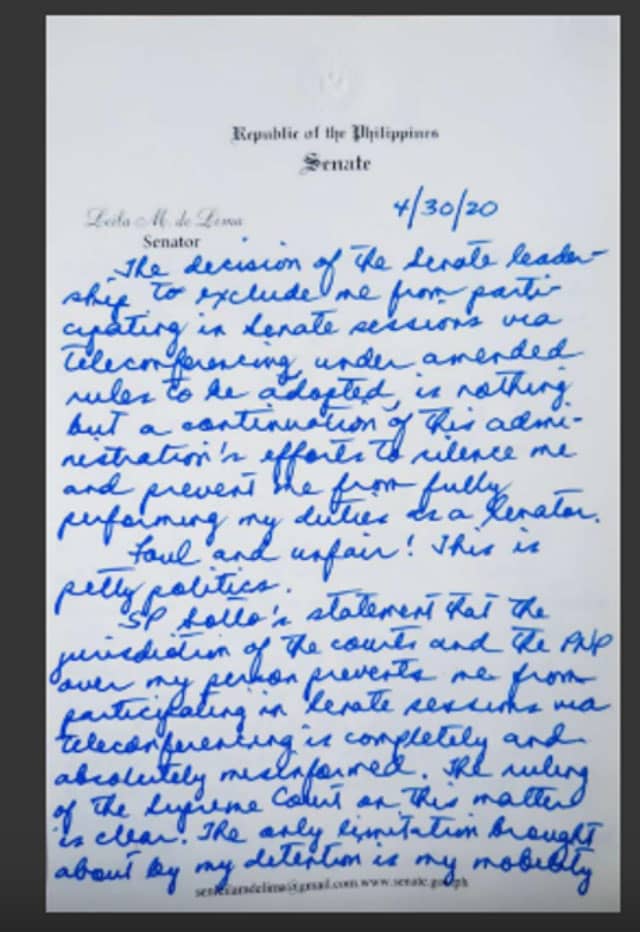 Republic of the Philippines
Senate
4/30/20
Leila M. de Lima
Senator
The decision of the Senate leader-
ship to exclude me from parti-
cipating in Senate sessions via
teleconferencing, under amended
rules to be adopted, is nothing
but a continuation of this admi-
nistration's efforts to silence me
and prevent me from fully
performing my duties as a Senator.
Foul and unfair! This is
petty politics.
SP Sotto's statement that the
jurisdiction of the courts and the PNP
over my person prevents me from
participating in Senate sessions via
teleconferencing is completely and
absolutely misinformed. The ruling
of the Supreme Court on this matter
is clear. The only limitation brought
about by my detention is my mobility
www.senate.gov.ph